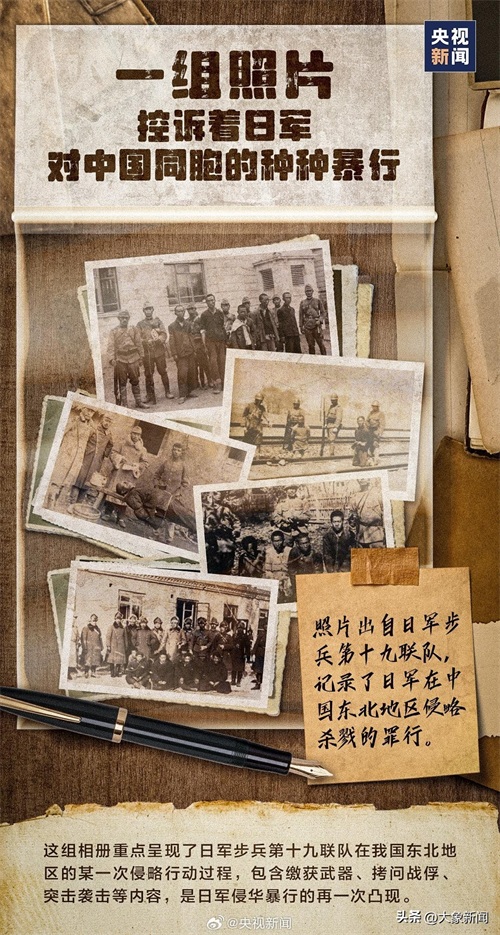 央视
新闻
一组照片
控诉着日军
对中国同胞的种种暴行
照片出自日军步
兵第十九联队，
记录了日军在中
国东北地区侵略
杀戮的罪行。
这组相册重点呈现了日军步兵第十九联队在我国东北地
区的某一次侵略行动过程，包含缴获武器、拷问战俘、
突击袭击等内容，是日军侵华暴行的再一次凸现。
@央视新闻
头条 @大象新闻